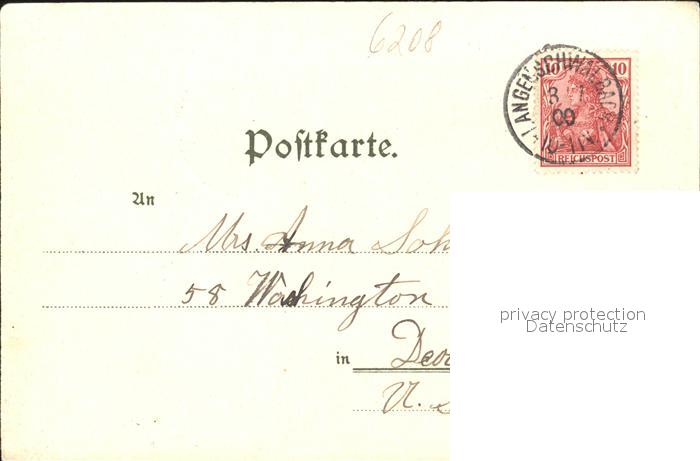 6208
LANGENSCHWALBACH
10 10
8 1
00
10-11 V
REICHSPOST
Postkarte.
An
Mrs. Anna Soh
58 Washington
privacy protection
Datenschutz
in
U. S